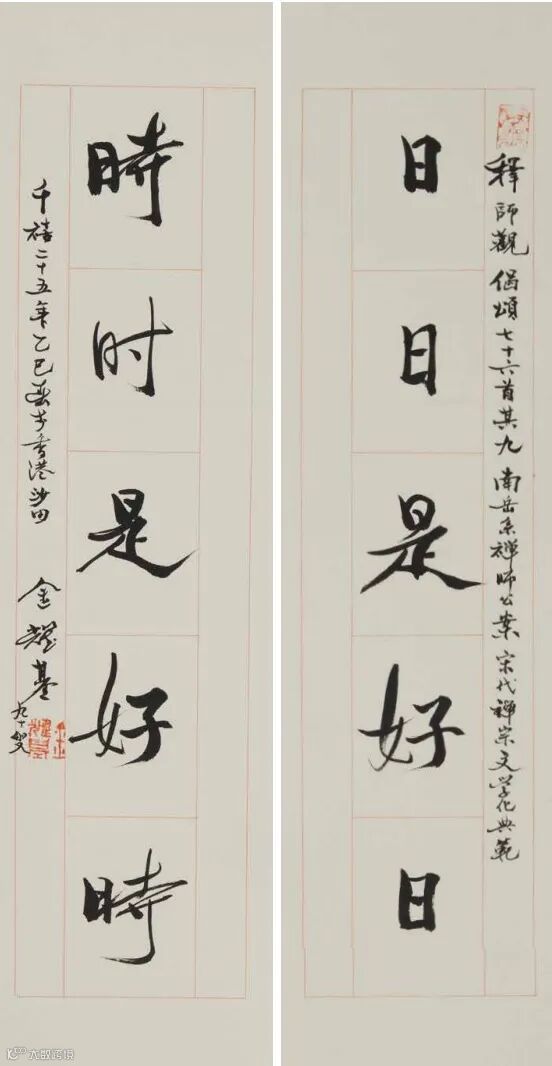 釋師觀 偈頌七十六首其九 南岳系禪師公案 宋代禪宗文學化典範
日日是好日
時时是好時
千禧二十五年乙巳春于香港沙田
金耀基
九十叟
大邮跨境